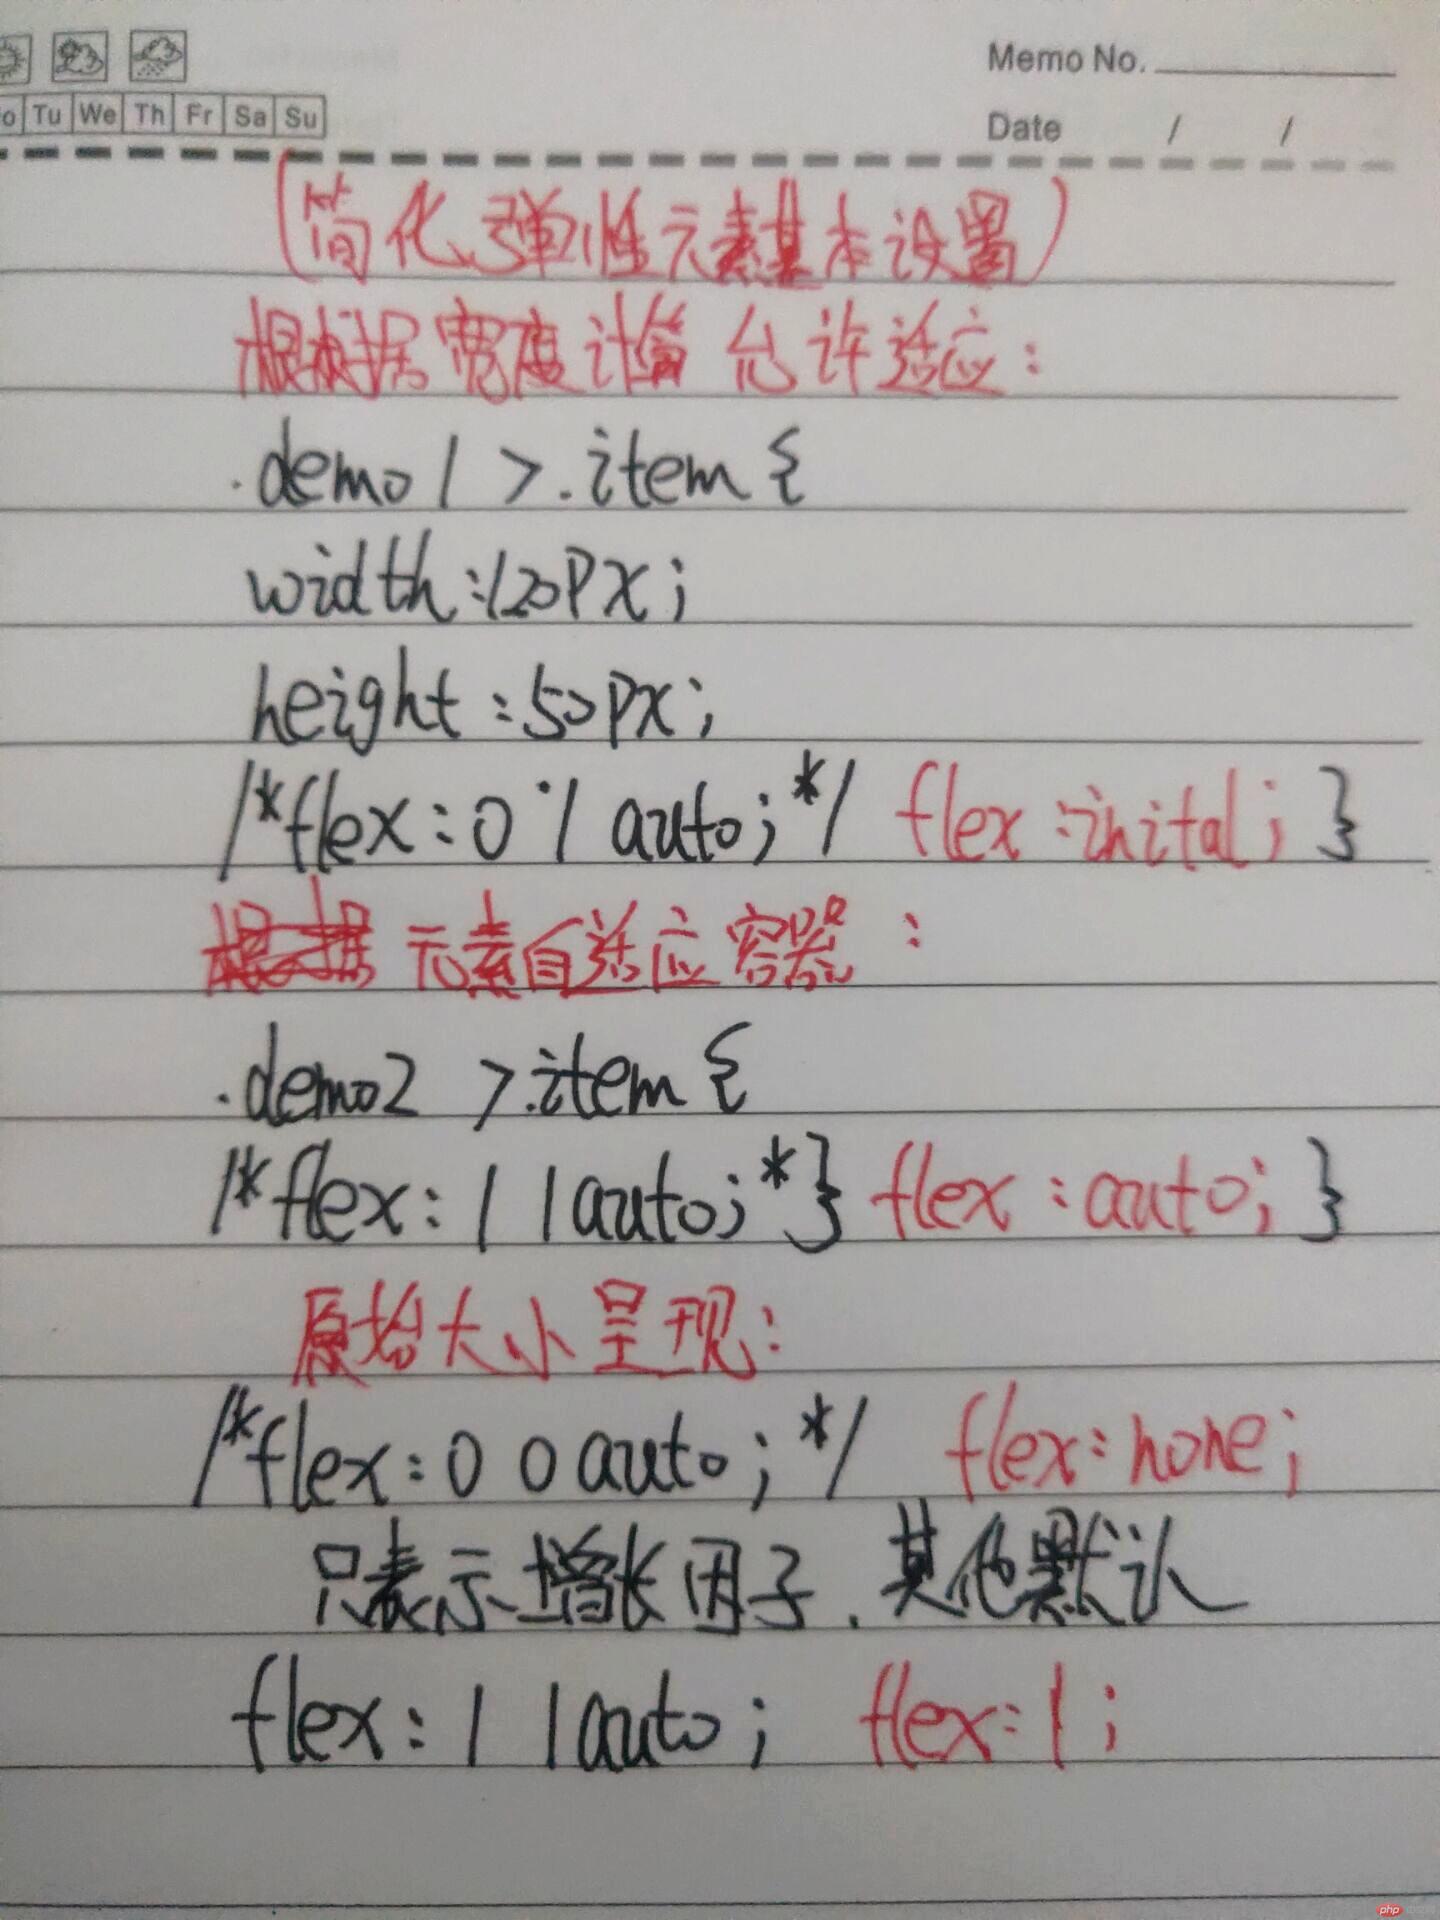 Memo No.
o Tu We Th Fr Sa Su
Date / /
(简化弹性元素基本设置)
根据宽度计算 允许适应:
.demo1 >.item {
width:120px;
height:50px;
/*flex:0 1 auto;*/ flex:inital; }
元素自适应容器:
.demo2 >.item {
/*flex: 1 1 auto;*} flex:auto; }
原始大小呈现:
/*flex:0 0 auto;*/ flex:none;
只表示增长因子.其他默认
flex:1 1 auto; flex:1;
php